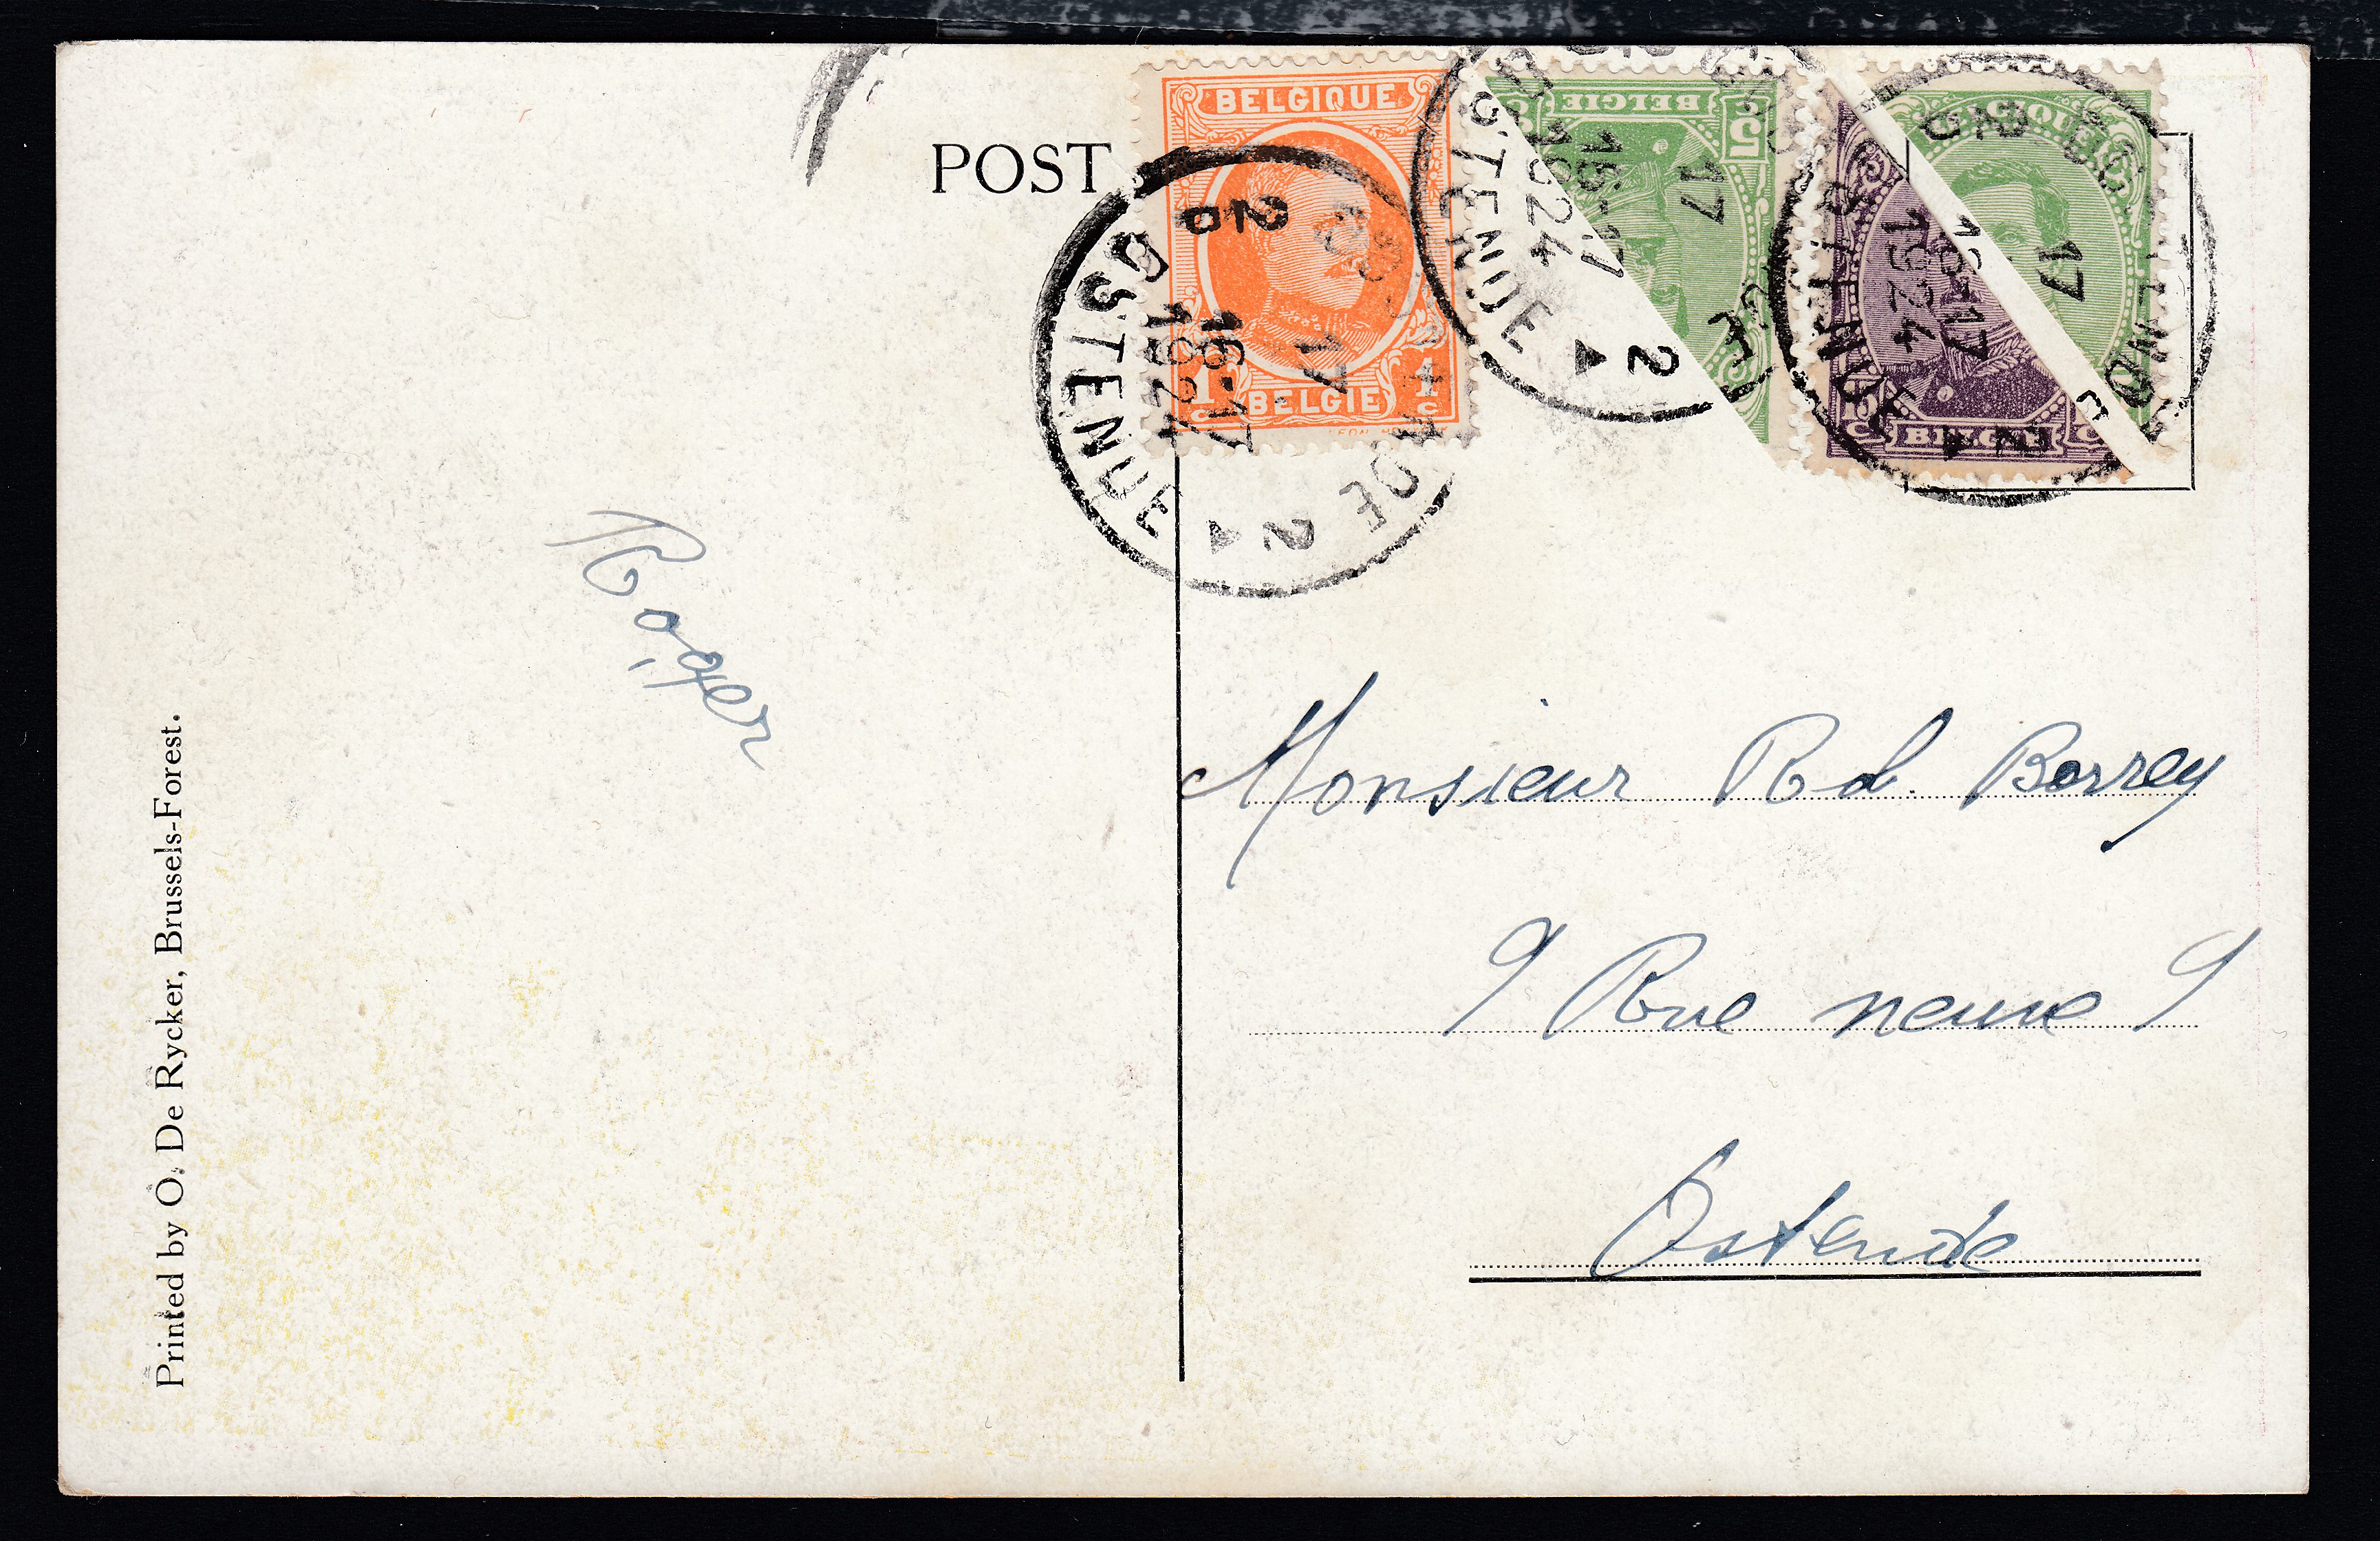 POST
BELGIQUE
1 c
1 c
BELGIE
OSTENDE
2
17
16-17
1924
BELGIE
5
17
16-17
1924
STENDE
2
17
16-17
1924
15
C
BELGIE
C
Roger
Monsieur Rd. Borrey
9 Rue neuve 9
Ostende
Printed by O. De Rycker, Brussels-Forest.